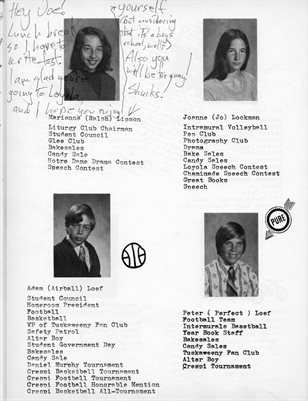 Hey Joe!
Lunch break
so I hope to
write fast.
I am glad you're
going to Loyola
and I hope you enjoy
yourself.
(but considering
that its a boys
school, well?)
Also you
will be the
Shucks!
Marianne (Ralph) Lipson
Liturgy Club Chairman
Student Council
Glee Club
Bakesales
Candy Sale
Notre Dame Drama Contest
Speech Contest
Joanne (Jo) Lockman
Intramural Volleyball
Pep Club
Photography Club
Drama
Bake Sales
Candy Sales
Loyola Speech Contest
Chaminade Speech Contest
Great Books
Speech
Adam (Airball) Loef
Student Council
Homeroom President
Football
Basketball
VP of Tuskaweeny Fan Club
Safety Patrol
Alter Boy
Student Government Day
Bakesales
Candy Sale
Daniel Murphy Tournament
Crespi Basketball Tournament
Crespi Football Tournament
Crespi Football Honorable Mention
Crespi Basketball All-Tournament
PURE
Peter ( Perfect ) Loef
Football Team
Intermurals Basetball
Year Book Staff
Bakesales
Candy Sales
Tuskaweeny Fan Club
Alter Boy
Crespi Tournament